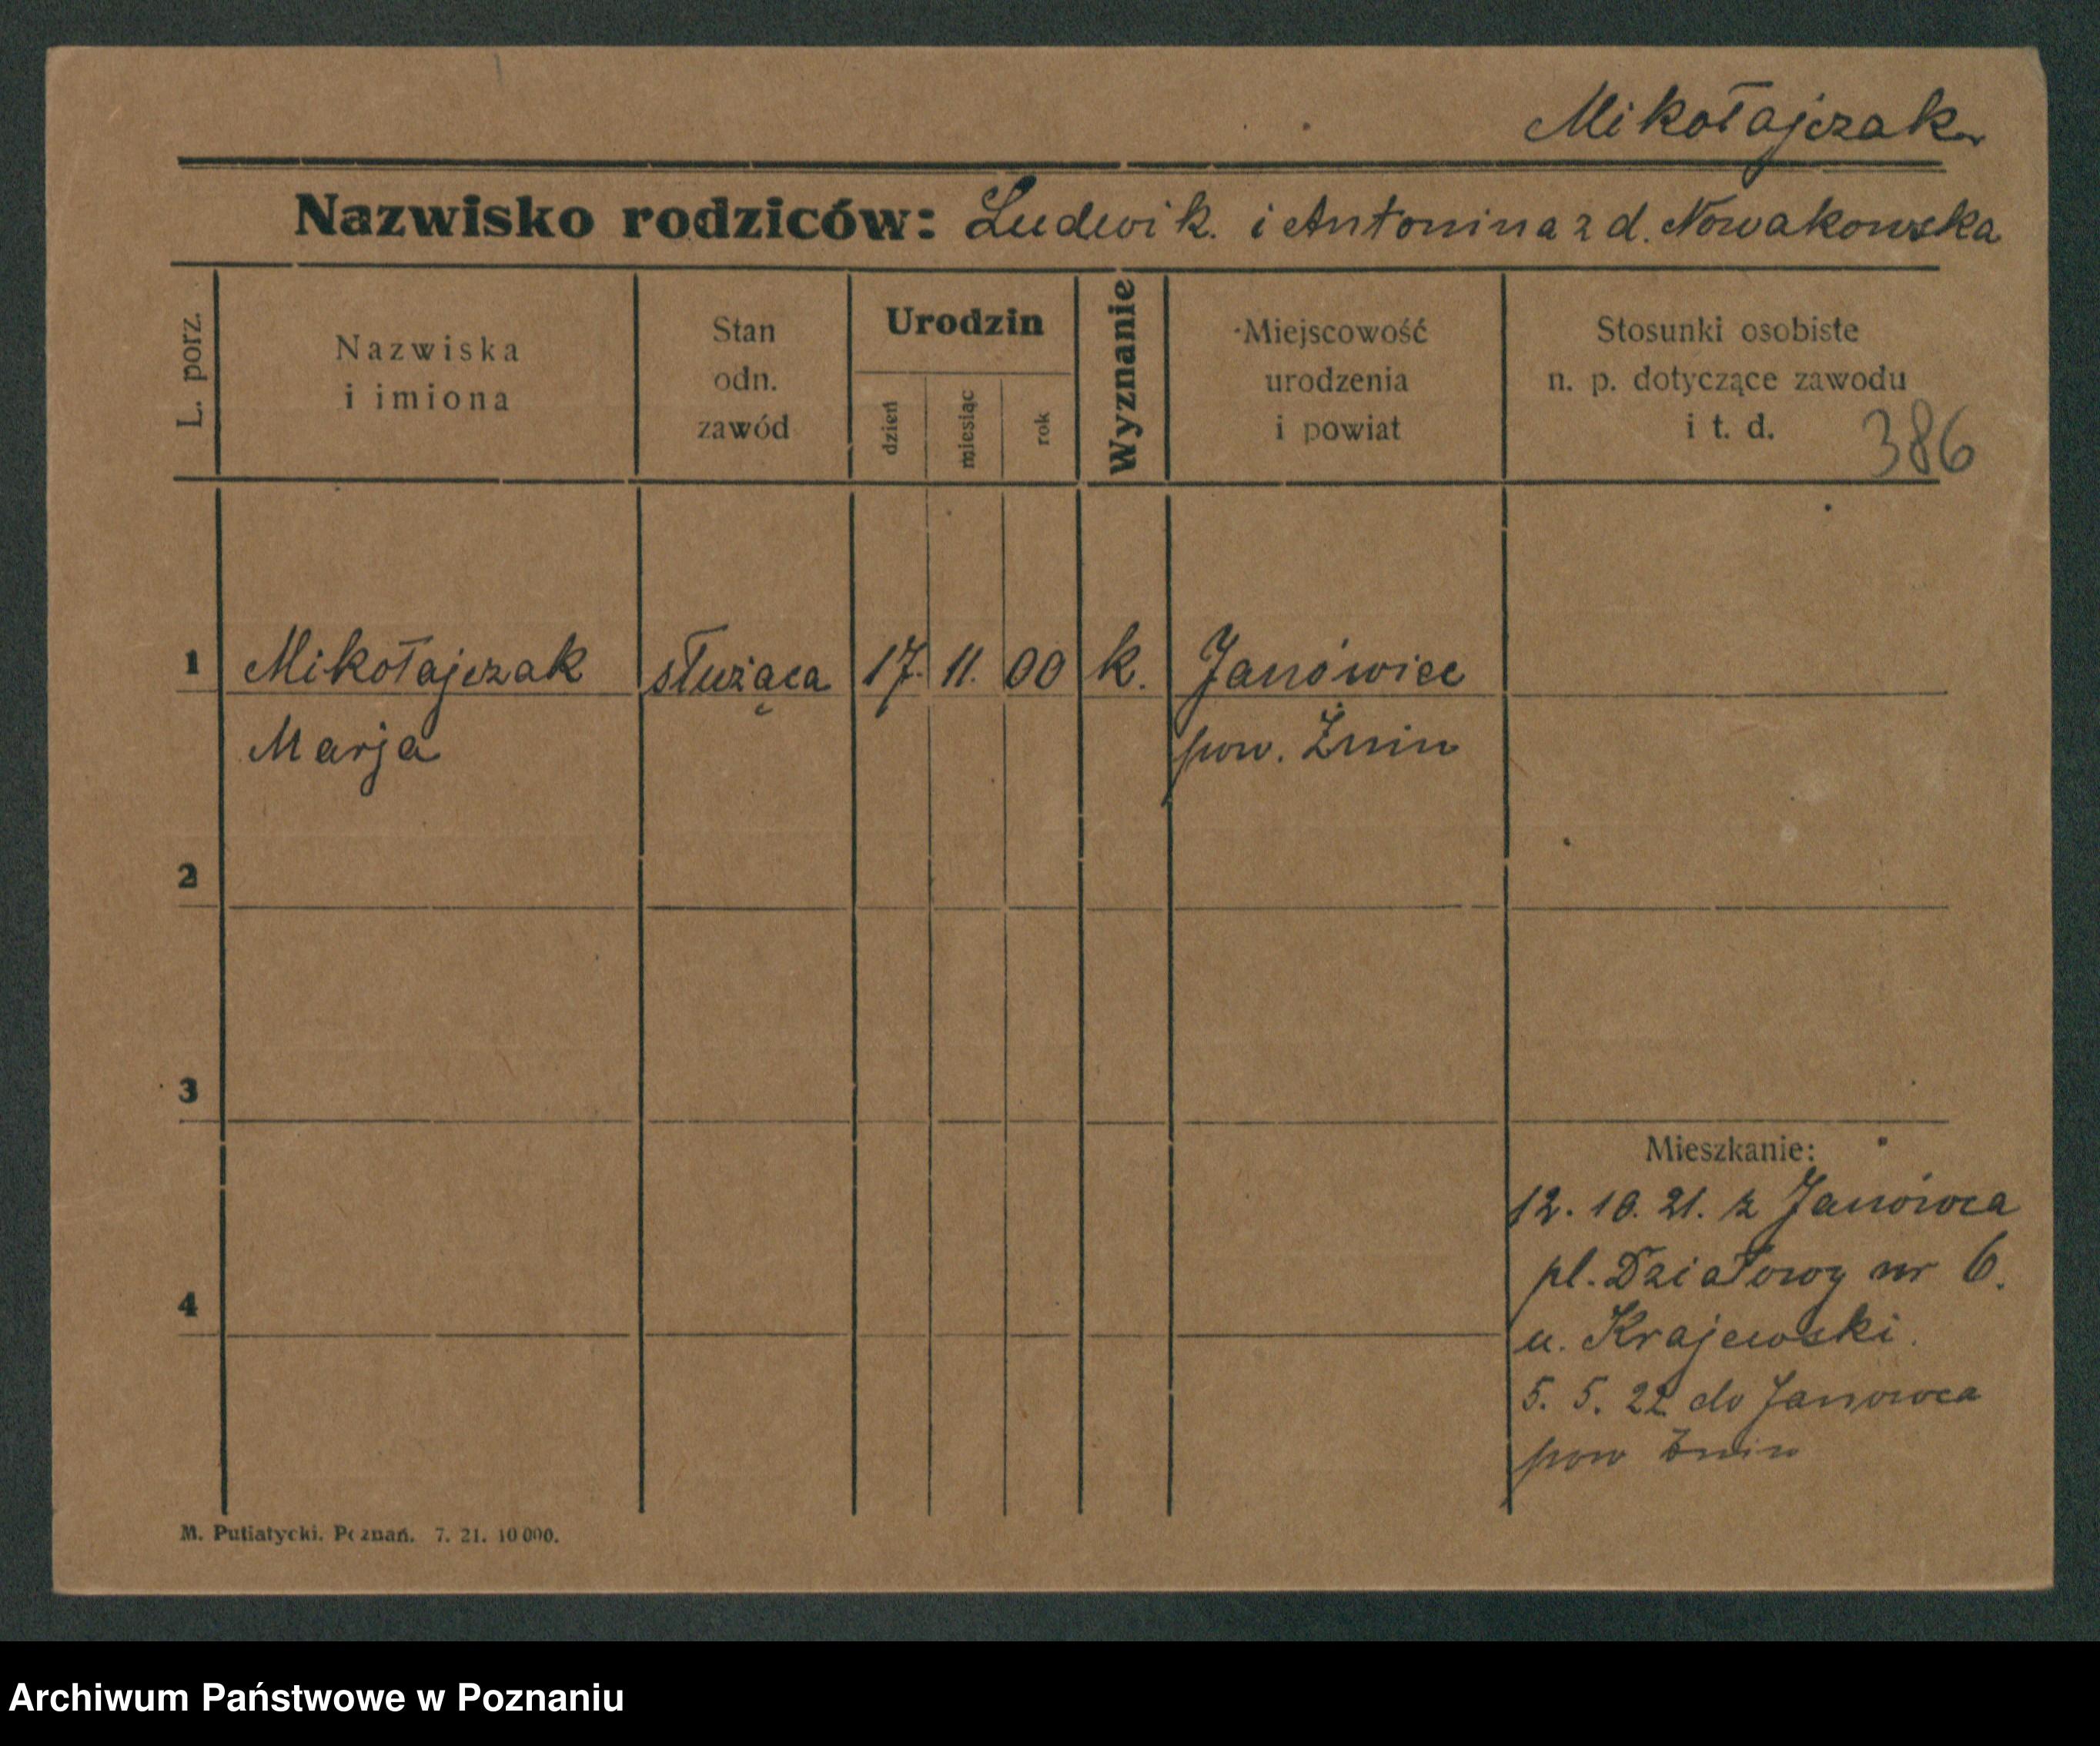 Mikołajczak
Nazwisko rodziców: Ludwik. i Antonina z d. Nowakowska
L. porz.
Nazwiska
i imiona
Stan
odn.
zawód
Urodzin
dzień
miesiąc
rok
Wyznanie
Miejscowość
urodzenia
i powiat
Stosunki osobiste
n. p. dotyczące zawodu
i t. d.
386
1 Mikołajczak służąca 17. 11. 00 k. Janówiec
Marja pow. Żnin
2
3
Mieszkanie:
12. 10. 21. z Janówca
pl. Działowy nr 6.
4
u. Krajewski.
5. 5. 22 do Janowca
pow Żnin
M. Putiatycki. Poznań. 7. 21. 10 000.
Archiwum Państwowe w Poznaniu